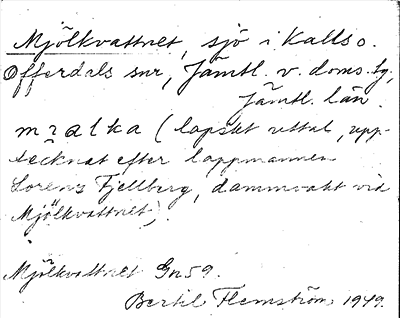 Mjölkvattnet, sjö i Kalls o.
Offerdals snr, Jämtl. v. doms. tg,
Jämtl. län.
(lapskt uttal, upp-
tecknat efter lappmannen
Lorens Fjellberg, dammvakt vid
Mjölkvattnet).
Mjölkvattnet Gn 59.
Bertil Flemström 1949.